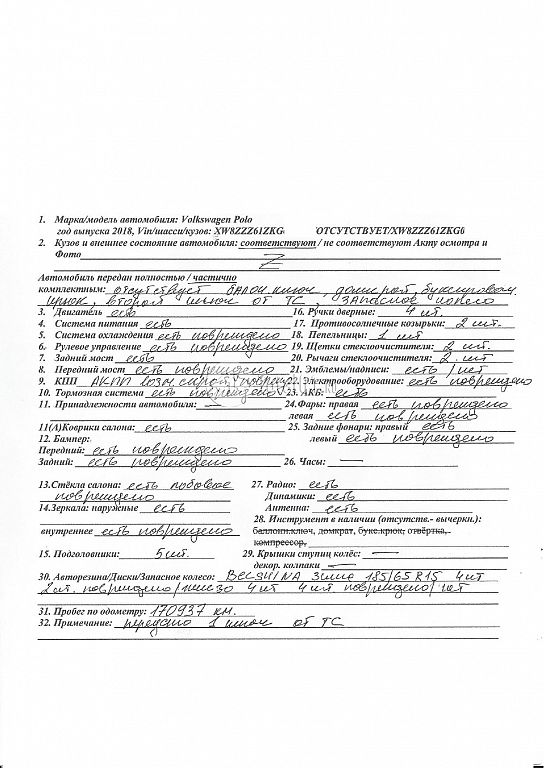 1. Марка/модель автомобиля: Volkswagen Polo
год выпуска 2018, Vin/шасси/кузов: XW8ZZZ61ZKG ОТСУТСТВУЕТ/XW8ZZZ61ZKG0
2. Кузов и внешнее состояние автомобиля: соответствуют / не соответствуют Акту осмотра и
Фото Z
Автомобиль передан полностью / частично
комплектным: отсутствует балон. ключ, домкрат, буксировочн
крюк, второй ключ от ТС, запасное колесо
3. Двигатель есть 16. Ручки дверные: 4 шт.
4. Система питания есть 17. Противосолнечные козырьки: 2 шт.
5. Система охлаждения есть повреждено 18. Пепельницы: 1 шт
6. Рулевое управление есть повреждено 19. Щетки стеклоочистителя: 2 шт.
7. Задний мост есть 20. Рычаги стеклоочистителя: 2 шт.
8. Передний мост есть повреждено 21. Эмблемы/надписи: есть /нет
9. КПП АКПП возм. скрыт. повреж 22. Электрооборудование: есть повреждено
10. Тормозная система есть повреждено 23. АКБ: есть
11. Принадлежности автомобиля: 24. Фары: правая есть повреждено
левая есть повреждено
11(А)Коврики салона: есть 25. Задние фонари: правый есть
12. Бампер: левый есть повреждено
Передний: есть повреждено
Задний: есть повреждено 26. Часы: —
13.Стёкла салона: есть лобовое 27. Радио: есть
повреждено Динамики: есть
14.Зеркала: наружные есть Антенна: есть
28. Инструмент в наличии (отсутств.- вычеркн.):
внутреннее есть повреждено баллон.ключ, домкрат, букс.крюк, отвёртка,
компрессор,
15. Подголовники: 5 шт. 29. Крышки ступиц колёс: —
декор. колпаки —
30. Авторезина/Диски/Запасное колесо: BELSHINA зима 185/65 R15 4 шт
2 шт. повреждено/железо 4 шт 4 шт повреждено/нет
31. Пробег по одометру: 170937 км.
32. Примечание: передано 1 ключ от ТС